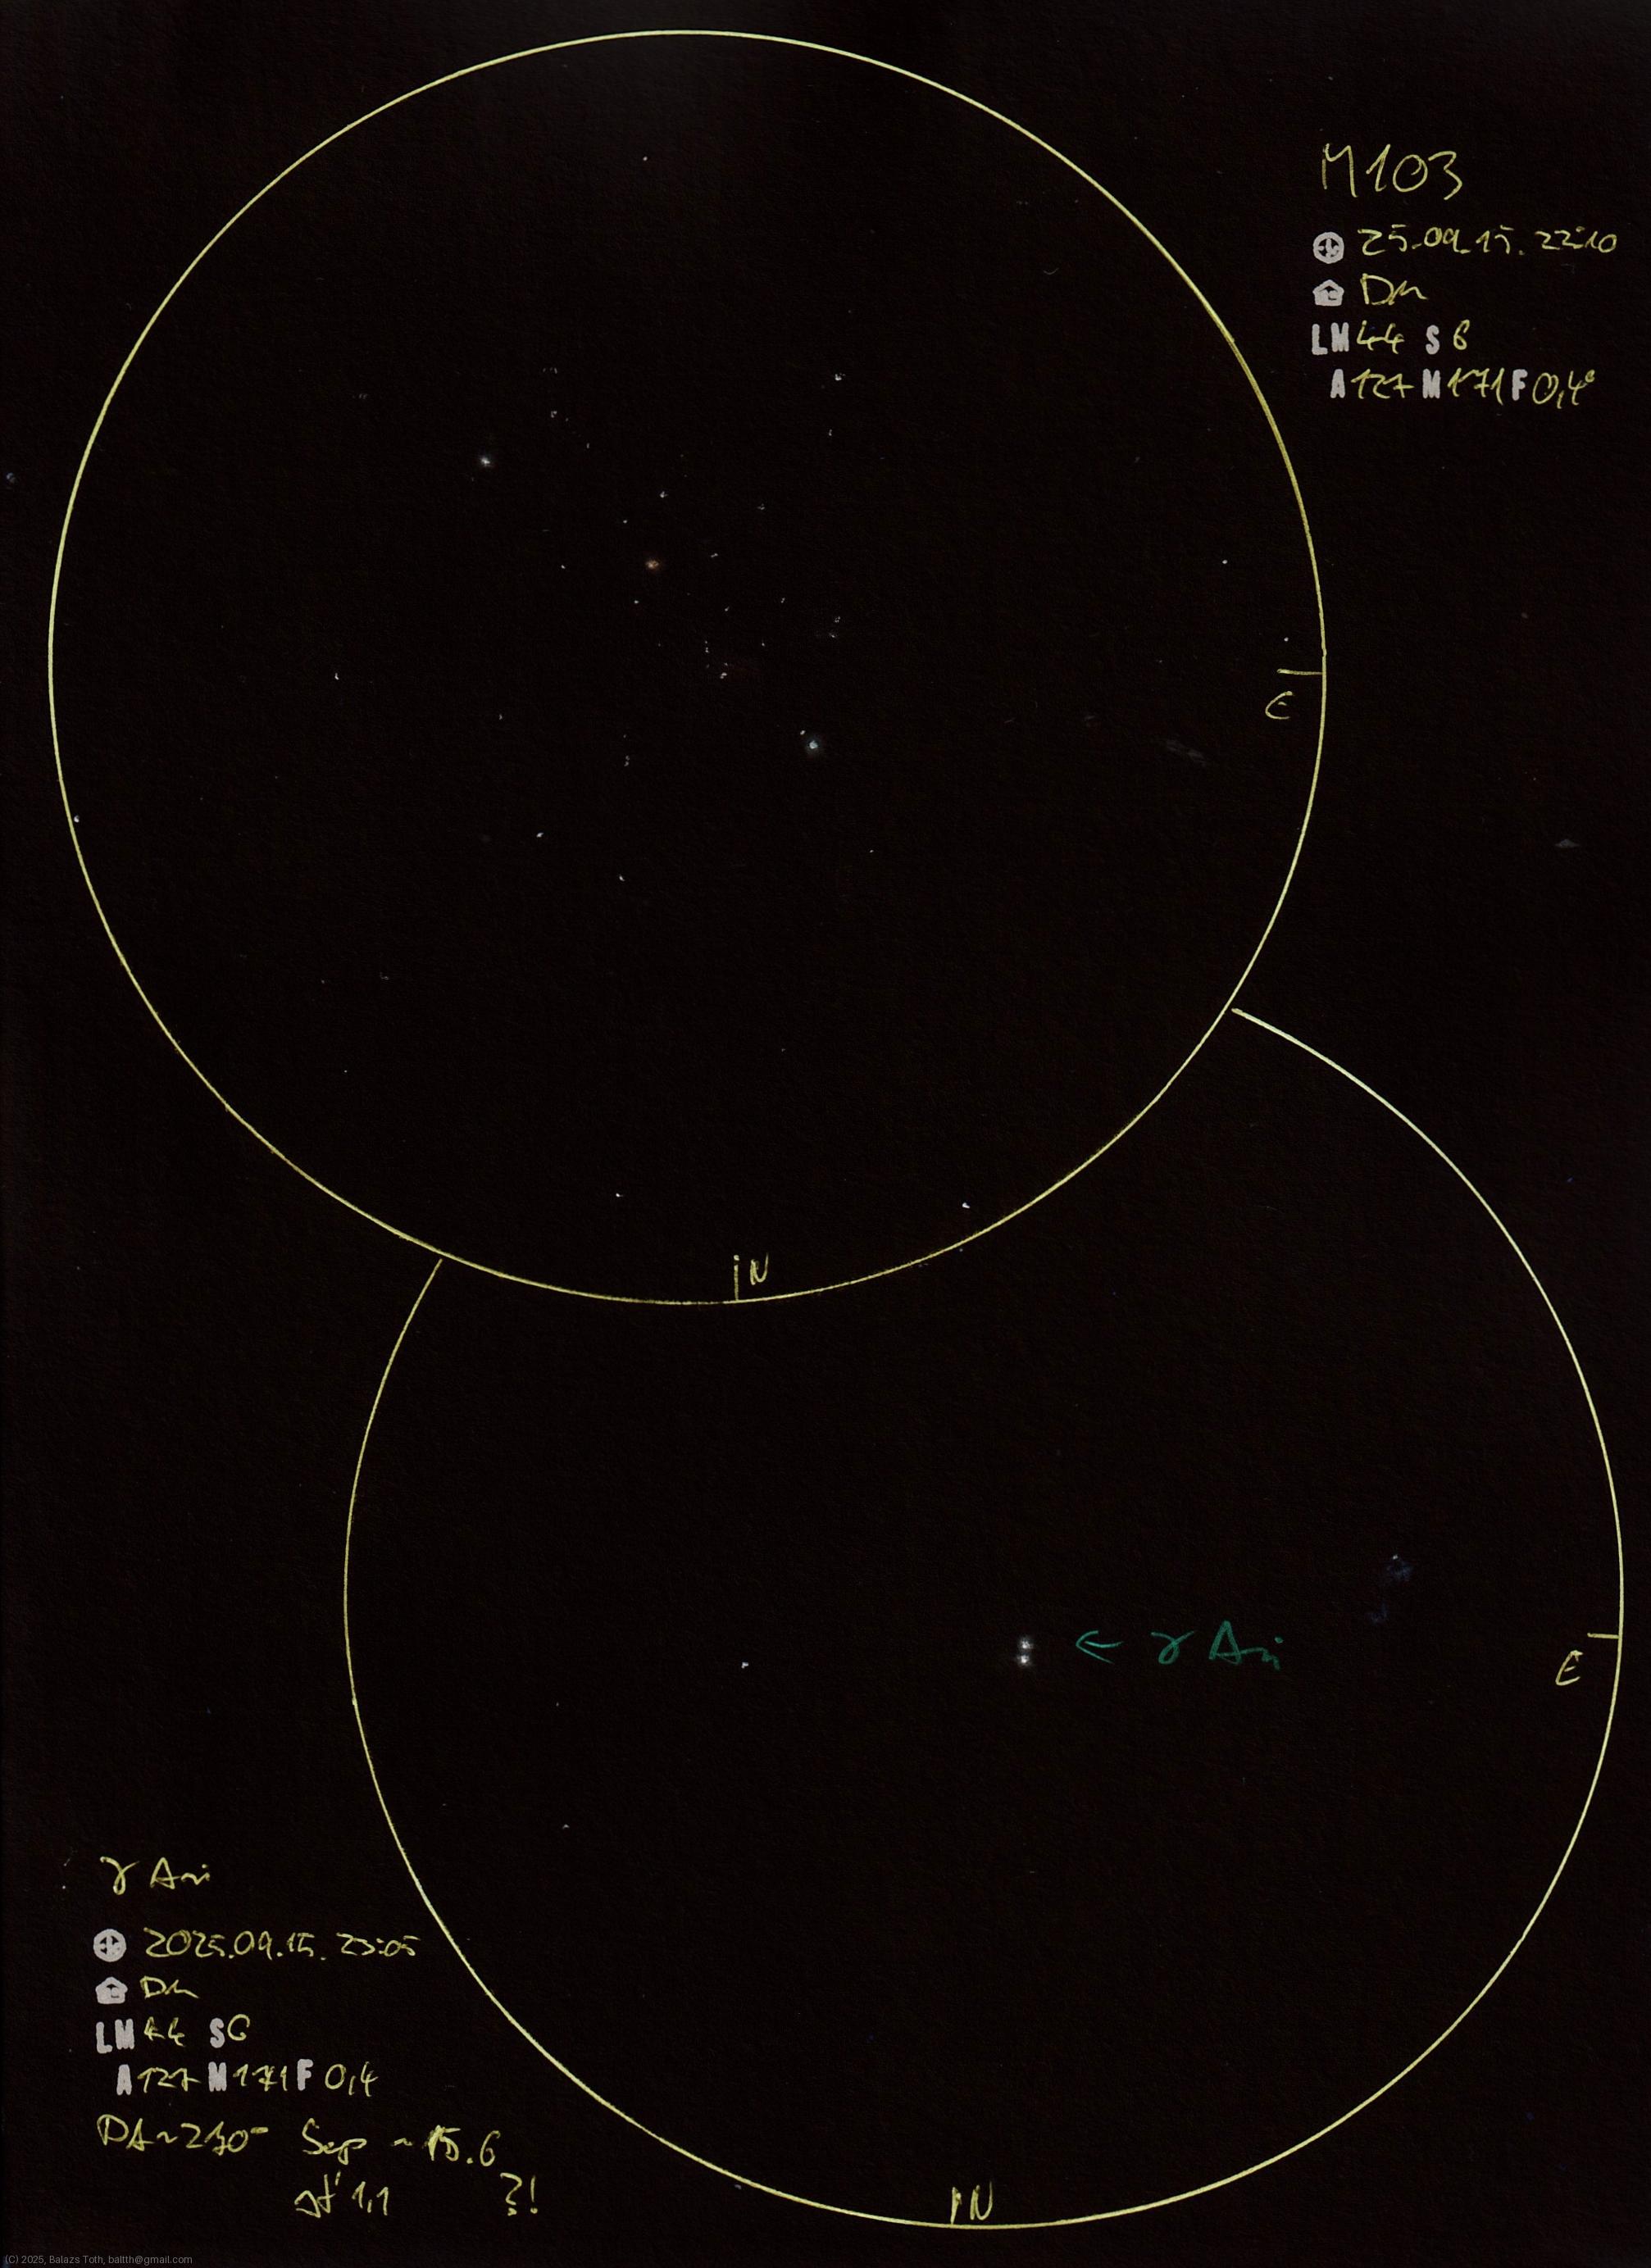 M103
25.09.15. 22:10
Dm
LM 44 S 6
A 127 M 171 F 0,4°
E
N
← γ Ari
E
γ Ari
2025.09.15. 23:05
Dm
LM 44 S 6
A 127 M 171 F 0,4
Sep ~15.6
1,1 ?!
N
(C) 2025, Balazs Toth, baltth@gmail.com